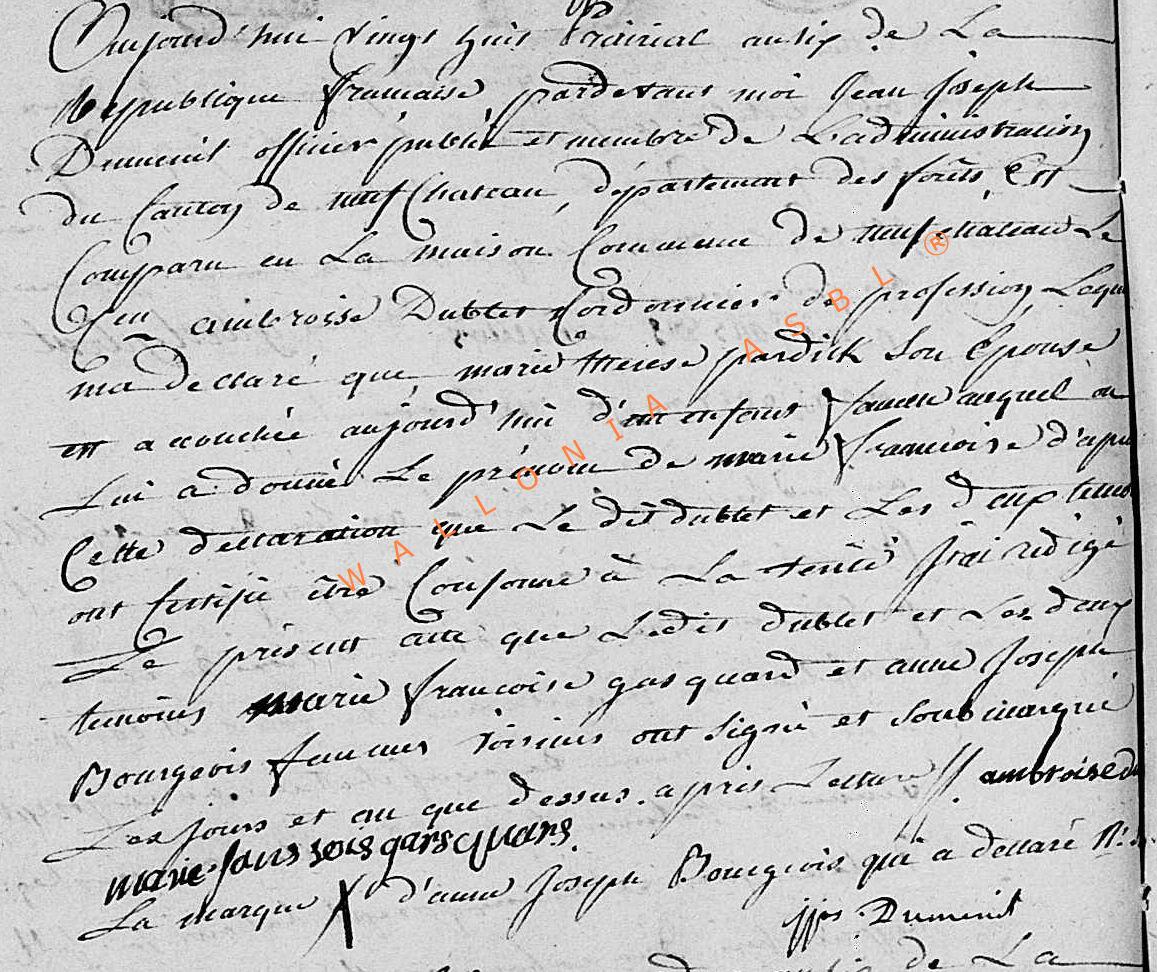 Aujourd'hui vingt huit Prairial an six de La
Republique francaise pardevant moi Jean Joseph
Dumenil officier public et membre de L'administration
du Canton de neufChateau, département des forêts, Est
Comparu en La maison Commune de neufchateau Le
Cen ambroise Dublet Cordonnier de profession, Lequ
m'a déclaré que marie therese pardick Son Epouse
est accouchée aujourd'hui d'un enfant femelle auquel on
Lui a donné Le prénom de marie francoise d'apr
Cette declaration que Le dit dublet et Les deux temo
ont Certifié être Conforme à La verité J'ai rédigé
Le présent acte que Ledit dublet et Les deux
temoins marie francoise gasquard et anne Joseph
Bourgeois femmes voisines ont signé et sousmarqué
Les jours et an que dessus. après Lecture //. ambroise du
marie fansSois garsquars
La marque X d'anne Joseph Bourgeois qui a déclaré
jjos. Dumenil
de La
WALLONIA ASBL ®